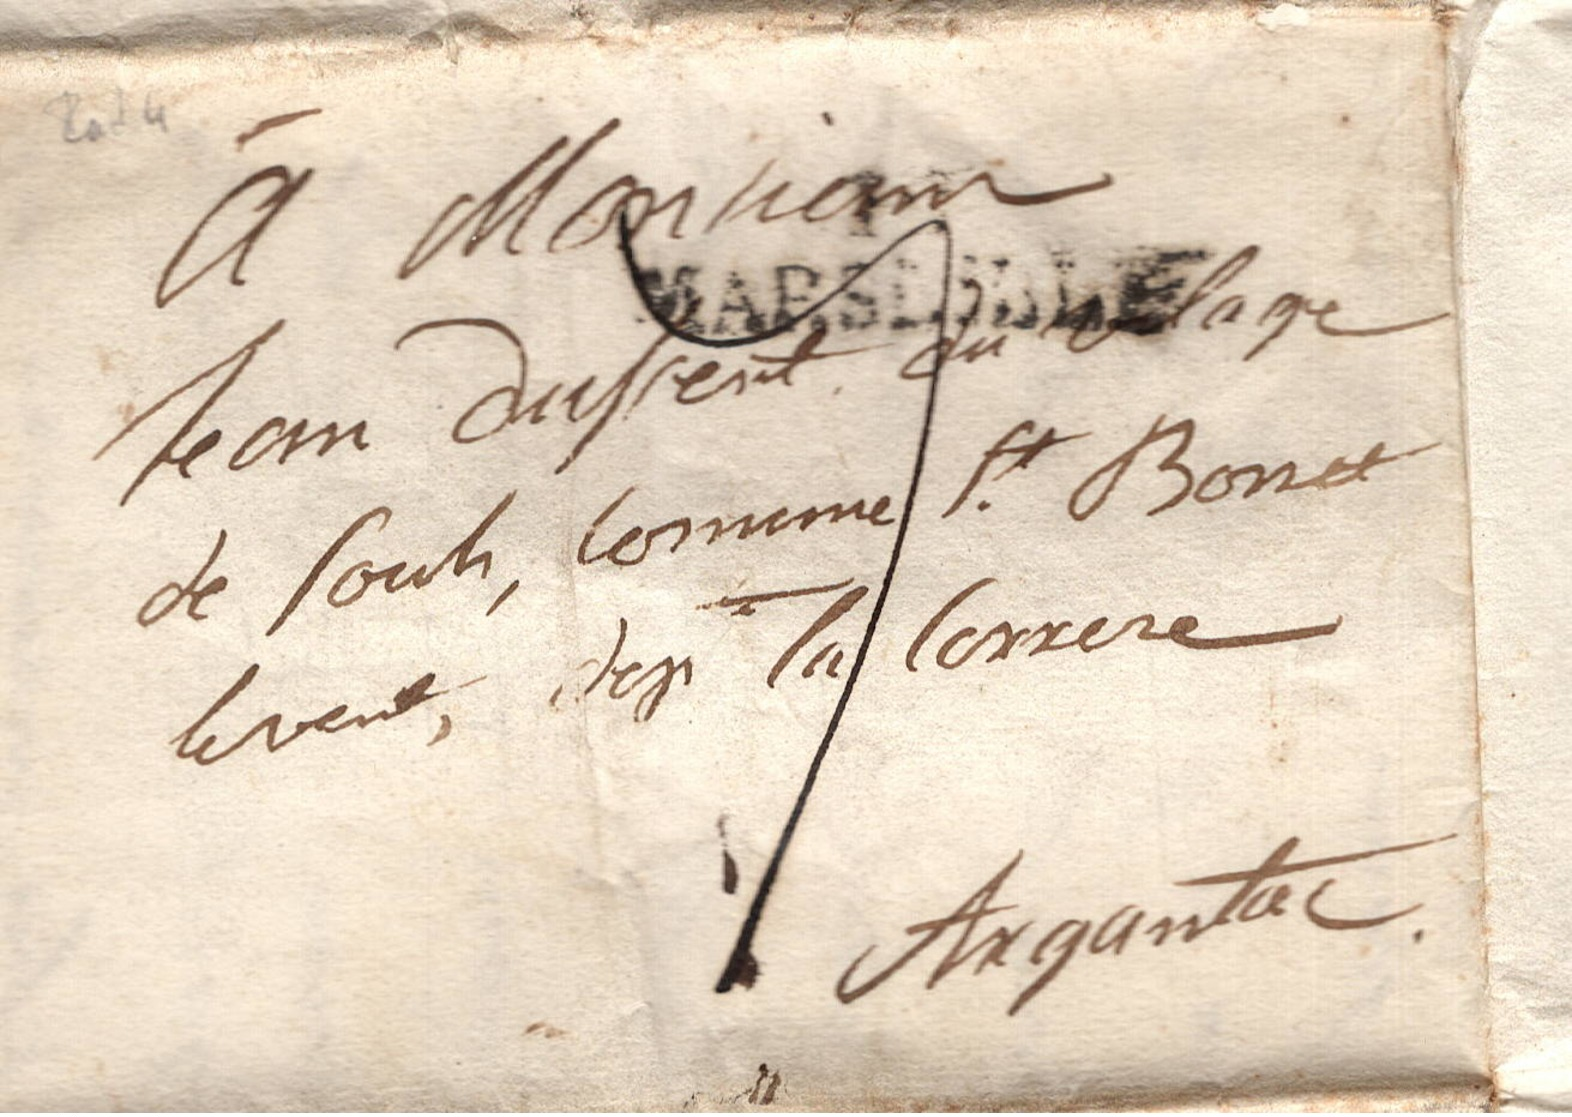 à Monsieur
MARSEILLE
Jean Dufsent du village
de Soulz, Commune St. Bonnet
levent, Dep.t la Correze
7
Argentac.